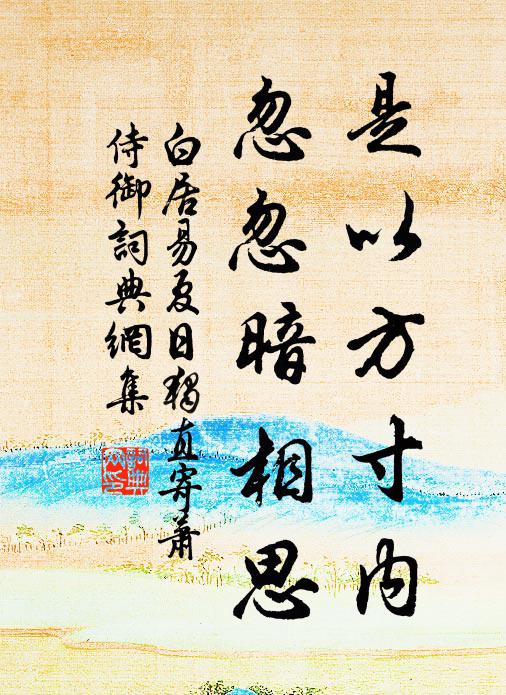 是以方寸內
忽忽暗相思
白居易夏日獨直寄蕭
侍御詞典網集